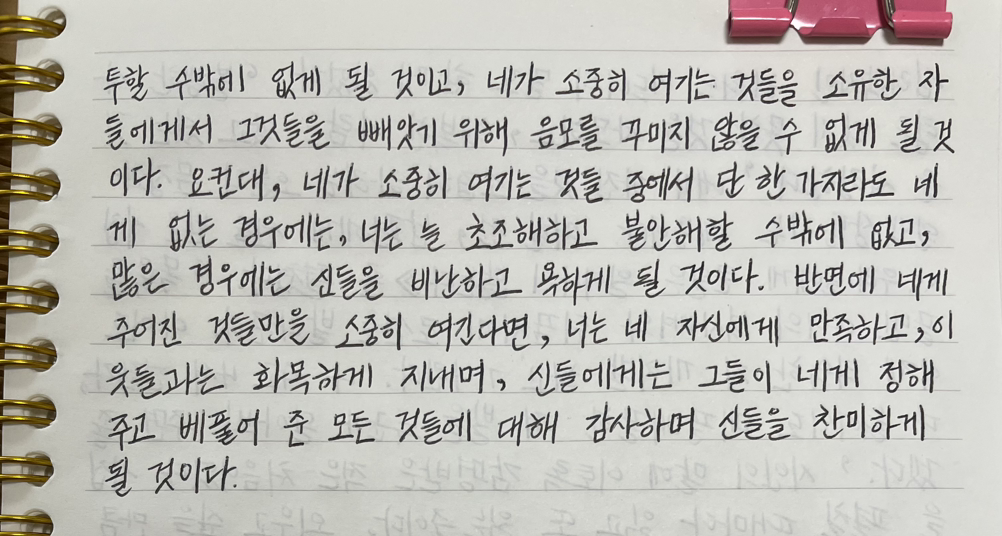 투할 수밖에 없게 될 것이고, 네가 소중히 여기는 것들을 소유한 자
들에게서 그것들을 빼앗기 위해 음모를 꾸미지 않을 수 없게 될 것
이다. 요컨대, 네가 소중히 여기는 것들 중에서 단 한 가지라도 네
게 없는 경우에는, 너는 늘 초조해하고 불안해할 수밖에 없고,
많은 경우에는 신들을 비난하고 욕하게 될 것이다. 반면에 네게
주어진 것들만을 소중히 여긴다면, 너는 네 자신에게 만족하고, 이
웃들과는 화목하게 지내며, 신들에게는 그들이 네게 정해
주고 베풀어 준 모든 것들에 대해 감사하며 신들을 찬미하게
될 것이다.